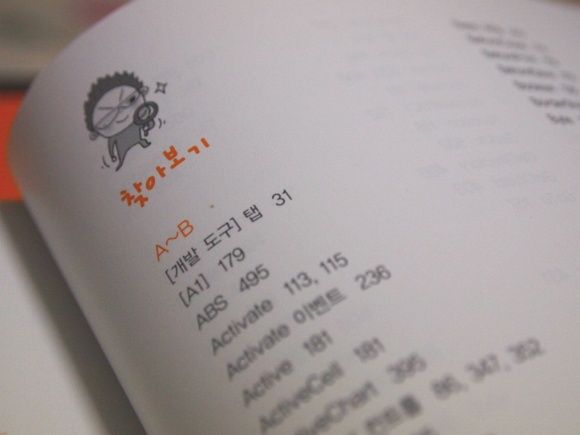 찾아보기
A~B
[개발 도구] 탭 31
[A1] 179
ABS 495
Activate 113, 115
Activate 이벤트 236
Active 181
ActiveCell 181
ActiveChart 395
컨트롤 86, 347, 352